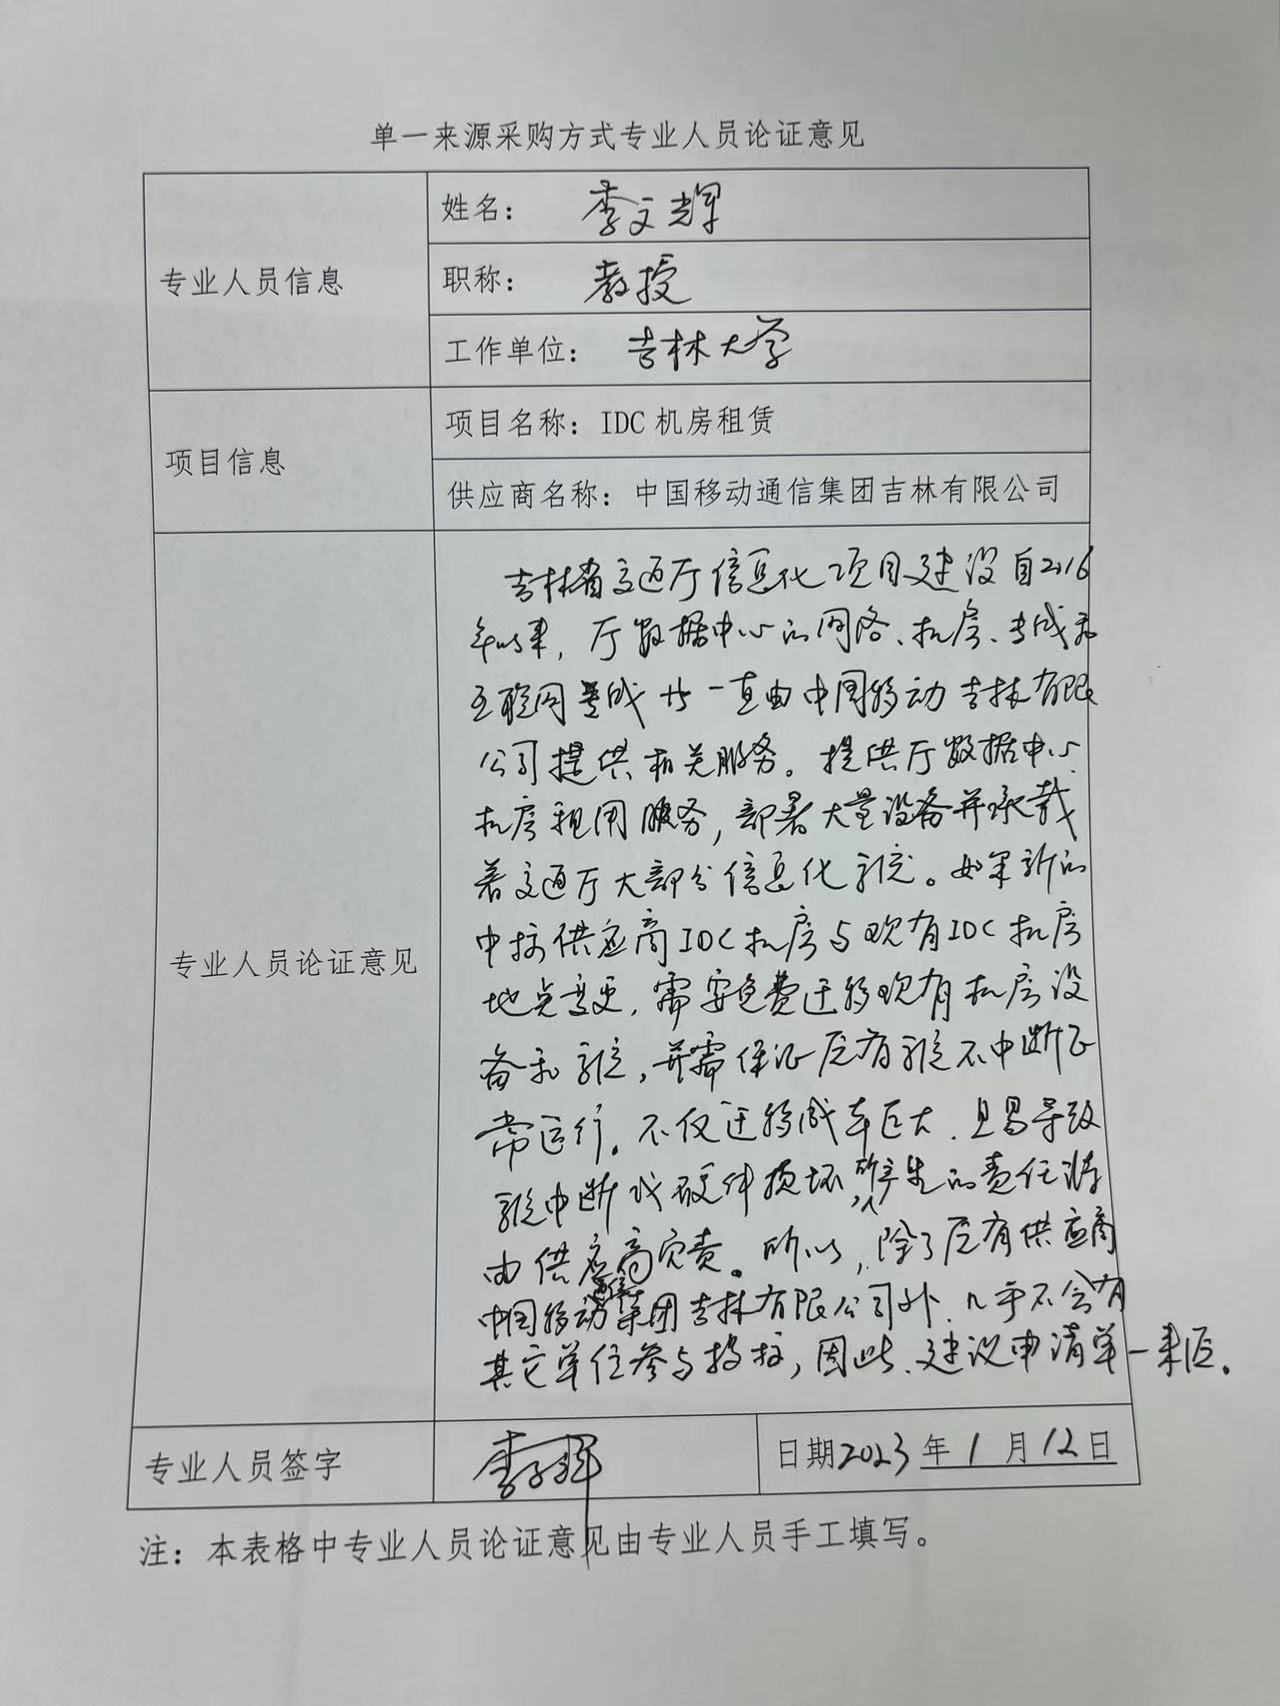 单一来源采购方式专业人员论证意见
专业人员信息
姓名： 李文辉
职称： 教授
工作单位： 吉林大学
项目信息
项目名称：IDC 机房租赁
供应商名称：中国移动通信集团吉林有限公司
专业人员论证意见
吉林省交通厅信息化项目建设自2016
年以来，厅数据中心的网络、机房、专线和
互联网专线 一直由中国移动吉林有限
公司提供相关服务。提供厅数据中心
机房租用服务，部署大量设备并承载
着交通厅大部分信息化系统。如果新的
中标供应商IDC机房与现有IDC机房
地点变更，需要免费迁移现有机房设
备和系统，并需保证原有系统不中断正
常运行。不仅迁移成本巨大、且易导致
系统中断或硬件损坏，所产生的责任
由供应商负责。所以，除了原有供应商
中国移动通信集团吉林有限公司外，几乎不会有
其它单位参与投标，因此、建议申请单一来源。
专业人员签字
李文辉
日期2023年1月12日
注：本表格中专业人员论证意见由专业人员手工填写。